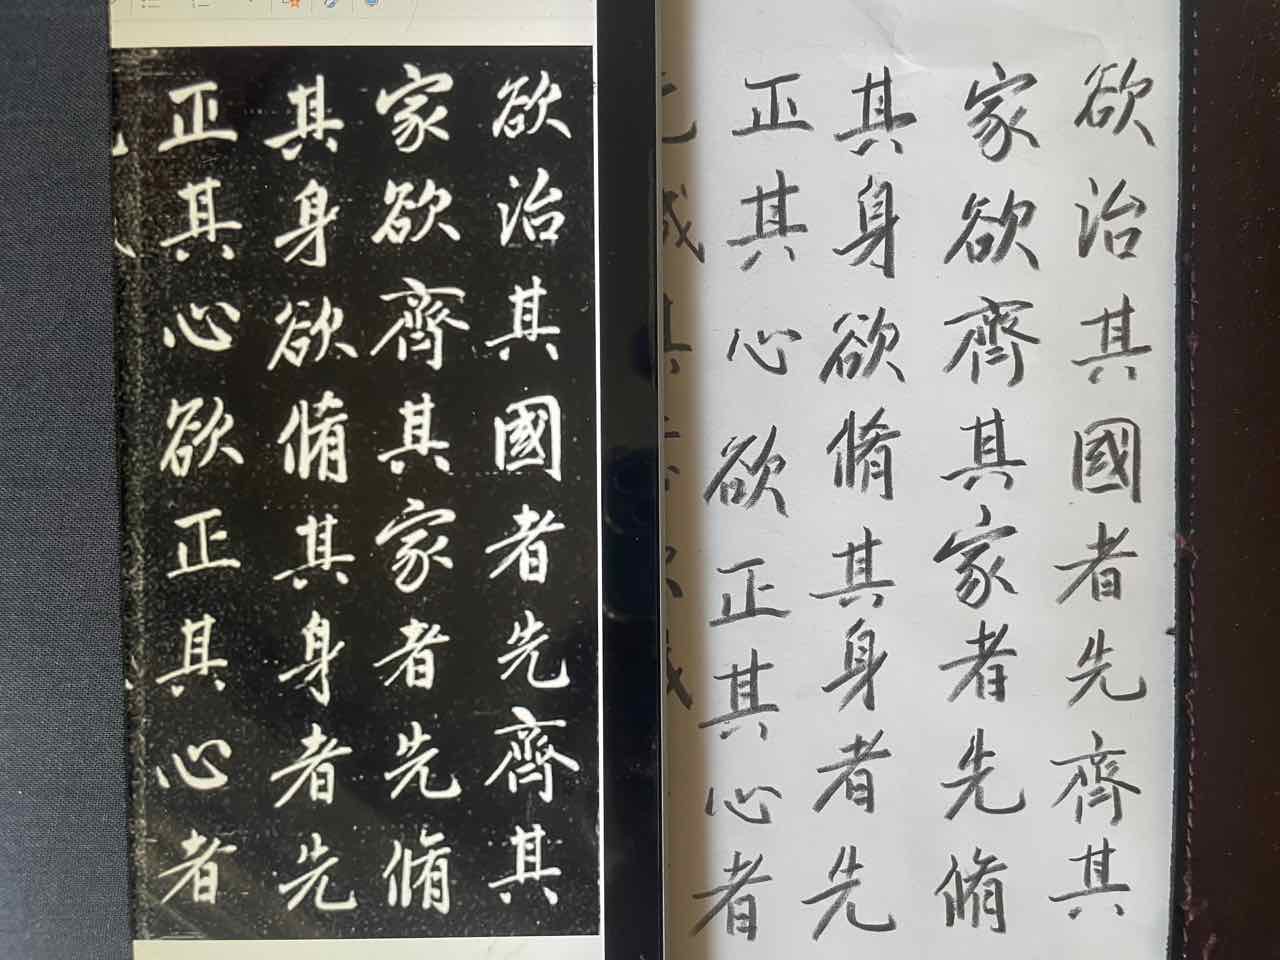 欲治其國者先齊其
家欲齊其家者先脩
其身欲脩其身者先
正其心欲正其心者
欲治其國者先齊其
家欲齊其家者先脩
其身欲脩其身者先
正其心欲正其心者